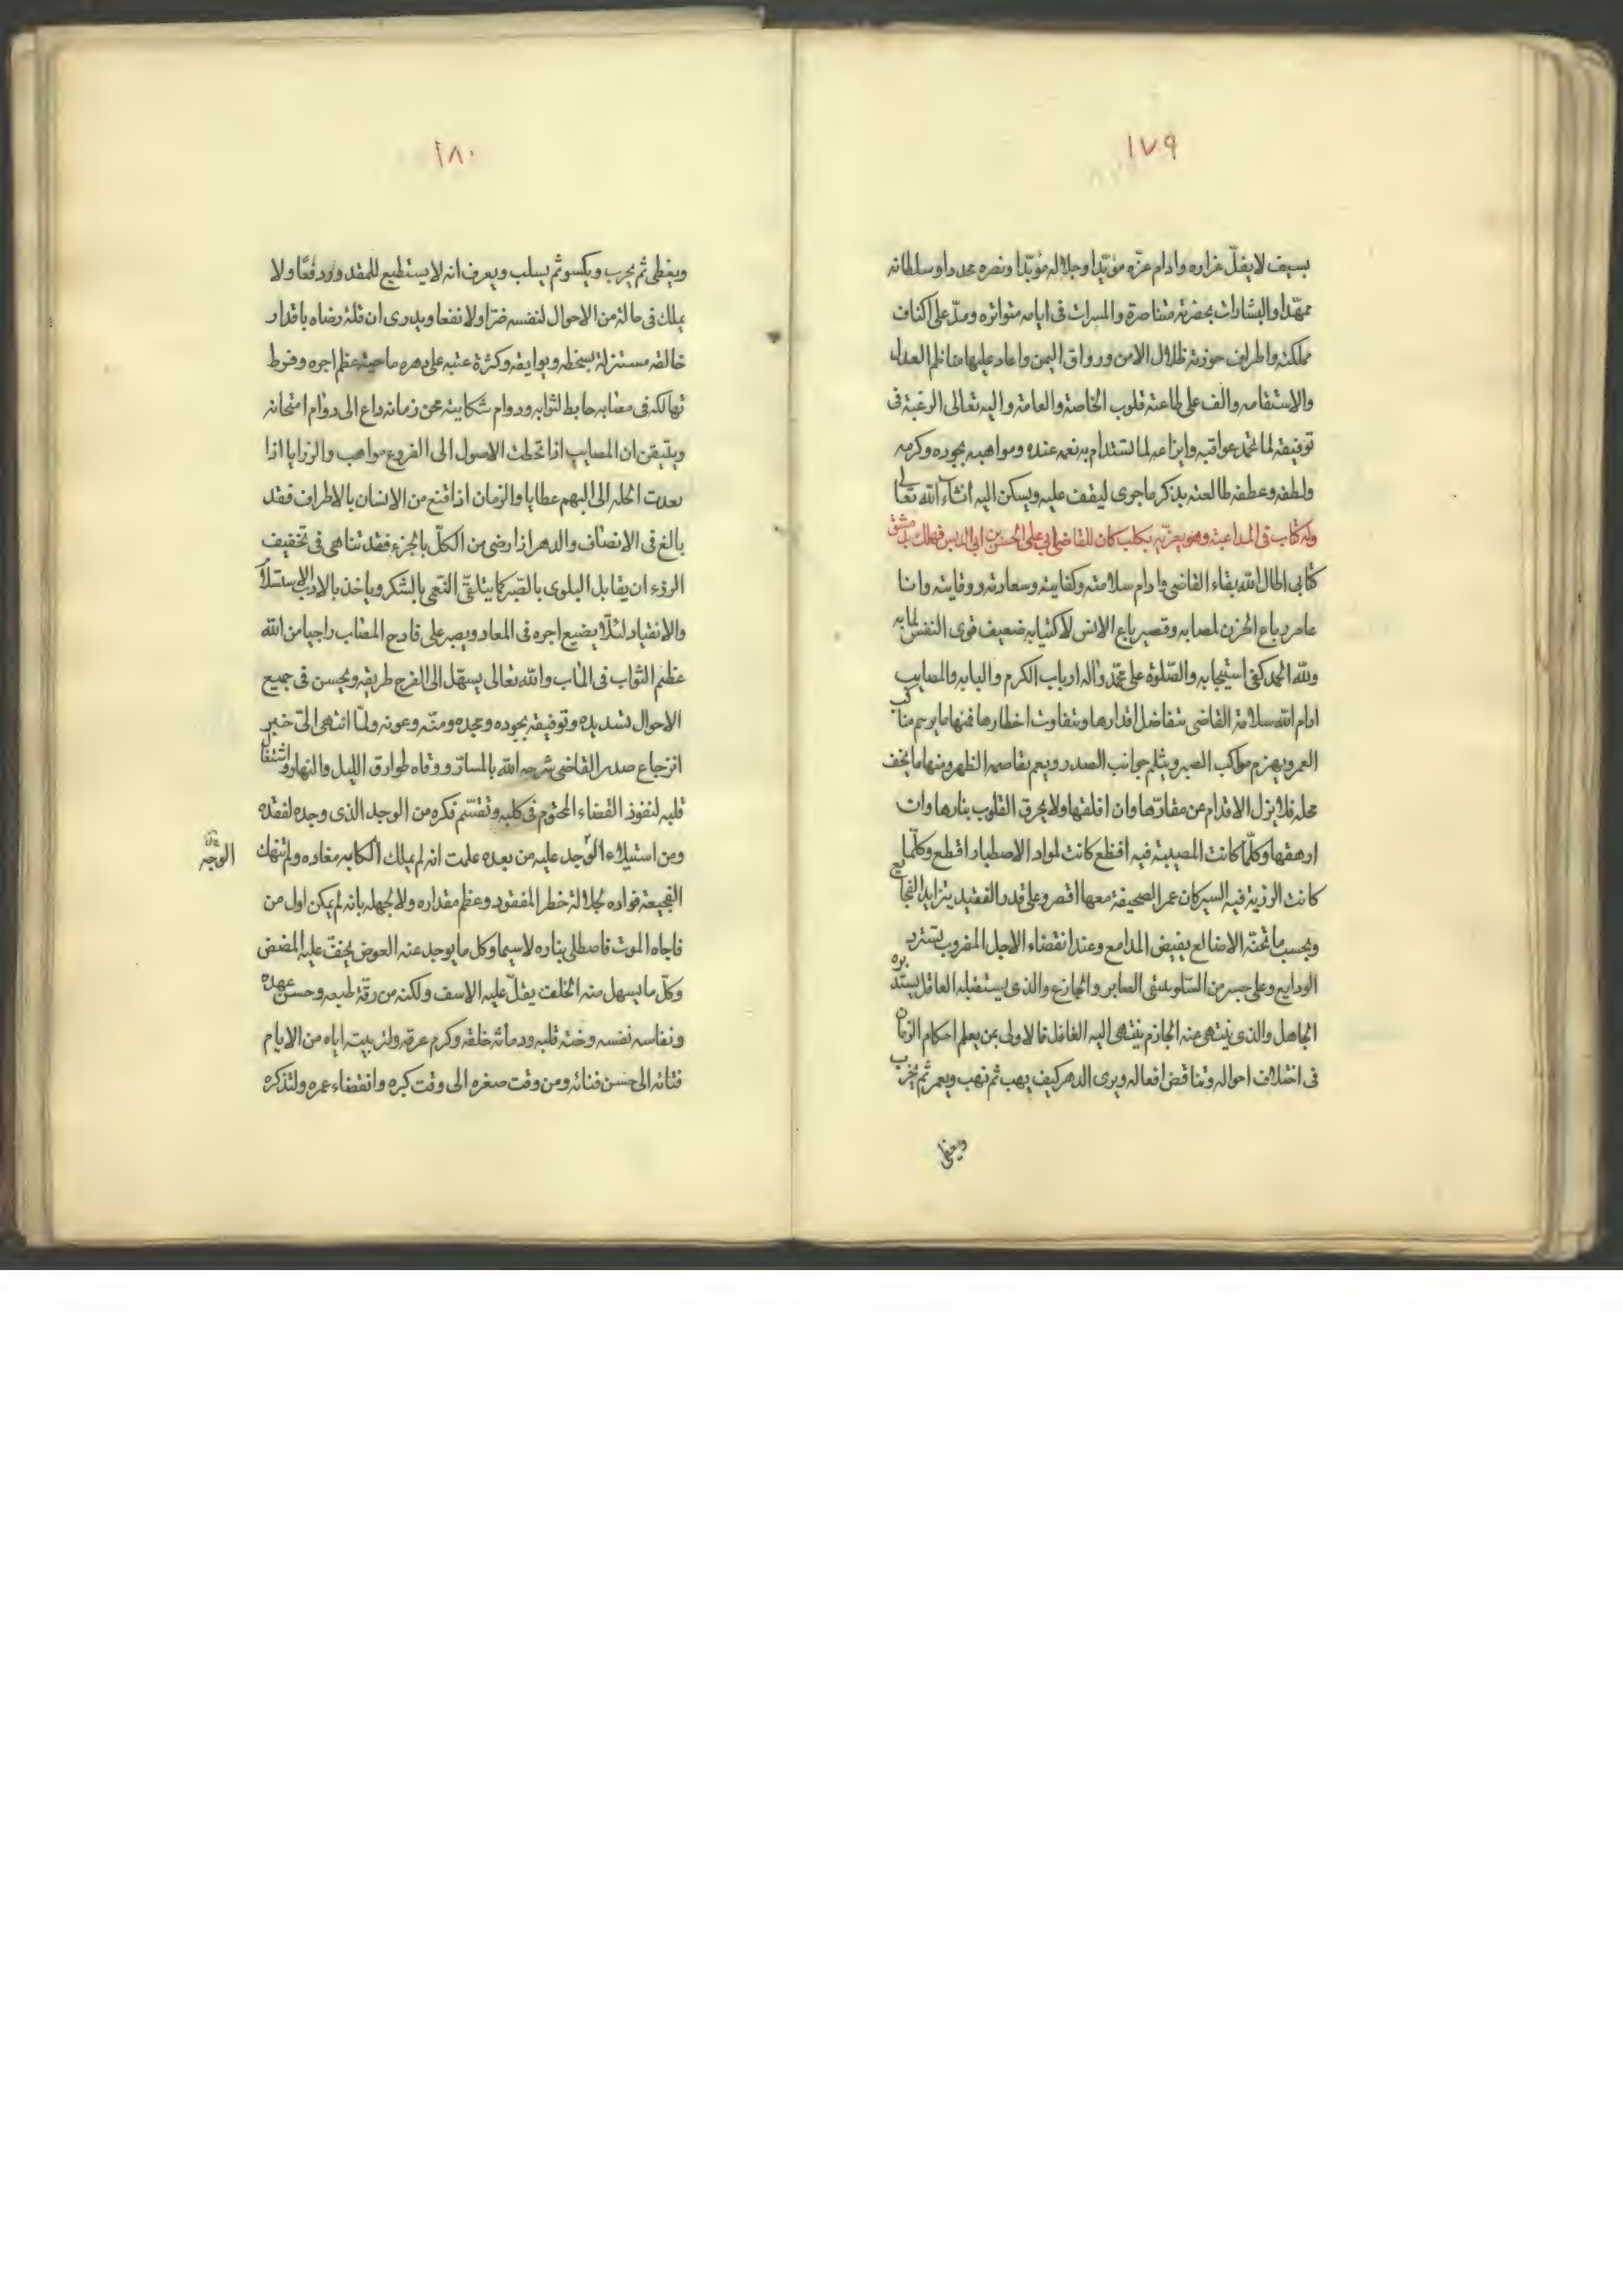 ١٧٩
بسيف لا يفلّ غراره وادام عزّه مؤيّدا وجلاله مؤبّدا ونصره مجددا وسلطانه
ممهّدا والبشارات بحضرته متناصرة والمسرات فى ايامه متواتره ومدّ على اكناف
مملكته واطراف حوزته ظلال الامن ورواق اليمن واعاد عليها مناظم العدل
والاستقامه والف على طاعته قلوب الخاصة والعامة واليه تعالى الرغبة فى
توفيقه لما تحمد عواقبه وايزاعه لما تستدام به نعمه عنده ومواهبه بجوده وكرمه
ولطفه وعطفه طالعته بذكر ما جرى ليقف عليه ويسكن اليه انشاء الله تعالى
وله كتاب فى المداعبة وهو يعزّيه بكلب كان للقاضى ابى على الحسن بن ابى الديس فهلك بدمشق
كتابى اطال الله بقاء القاضى وادام سلامته وكفايته وسعادته ووقايته وانا
عامر رباع الحزن لمصابه وقصير باع الانس لاكتيابه ضعيف قوى النفس لمابه
ولله الحمد كفى استيجابه والصّلوة على محمّد واله ارباب الكرم والبابه والمصايب
ادام الله سلامة القاضى تتفاضل اقدارها وتتفاوت اخطارها فمنها ما يرحم مناكب
العمر ويهزم مواكب الصبر ويثلم جوانب الصدر ويعم بقاصمه الظهر ومنها ما يخف
محله فلا يزل الاقدام عن مقارّها وان اقلقها ولا يحرق القلوب بنارها وان
ارهقها وكلّما كانت المصيبة فيه افظع كانت لمواد الاصطبار اقطع وكلّما
كانت الرزية فيه السير كان عمر الصحيفة معها اقصر وعلى قدر الفقيد يتزايد الفجايع
وبحسب ما تحته الاضالع يفيض المدامع وعند انقضاء الاجل المضروب تسترد
الودايع وعلى جسر من السّلو يمشى الصابر والجازع والذى يستقبله العاقل يستدبره
الجاهل والذى ينتهى عنه الحازم ينتهى اليه الغافل فالاولى بمن يعلم احكام الزمان
فى اختلاف احواله وتناقض افعاله ويرى الدهر كيف يهب ثم نهب ويعمر ثم يخرب
ويعطى
١٨٠
ويعطى ثم يحرب ويكسو ثم يسلب ويعرف انه لا يستطيع للمقدور دفعًا ولا
يملك فى حالة من الاحوال لنفسه ضرّا ولا نفعا ويدرى ان قلة رضاه باقدار
خالقه مستنزلة بسخطه وبوايقه وكثرة عتبه على دهره ماحية عظم اجره وفرط
تهالكه فى مصابه حابط لثوابه ودوام شكايته محن زمانه داع الى دوام امتحانه
ويتيقن ان المصايب اذا تخطت الاصول الى الفروع مواهب والرزايا اذا
تعدت الجله الى البهم عطايا والزمان اذا قنع من الانسان بالاطراف فقد
بالغ فى الانصاف والدهر اذا رضى من الكلّ بالجزء فقد تناهى فى تخفيف
الرزء ان يقابل البلوى بالصّبر كما يتلقّى النعمى بالشكر وياخذ بالادب الاستسلام
والانقياد لئلّا يضيع اجره فى المعاد ويصبر على فادح المصاب راجيا من الله
عظيم الثواب فى الماب والله تعالى يسهّل الى الفرج طريقه ويحسن فى جميع
الاحوال تسديده وتوفيقه بجوده ومجده ومنّه وعونه ولمّا انتهى الىّ خبر
انزعاج صدر القاضى شرحه الله بالمسارّ ووقاه طوارق الليل والنهار واشتغال
قلبه لنفوذ القضاء المحتوم فى كلبه وتقسّم فكره من الوجد الذى وجده لفقده
ومن استيلاء الوجد عليه من بعده علمت انه لم يملك الكابه مغاده ولم تنهك
الوجه
الفجيعة فواده لجلالة خطر المفقود وعظم مقداره ولا لجهله بانه لم يكن اول من
فاجاه الموت فاصطلى بناره لاسيما وكل ما يوجد عنه العوض يخفّ عليه المضض
وكلّ ما يسهل منه الخلف يقلّ عليه الاسف ولكنه من رقّة طبعه وحسن عهده
ونفاسه نفسه وخنّه قلبه ودماثه خلقه وكرم عرقه ولتربيته اياه من الايام
فتائه الى حسن فنائه ومن وقت صغره الى وقت كبره وانقضاء عمره ولتذكره